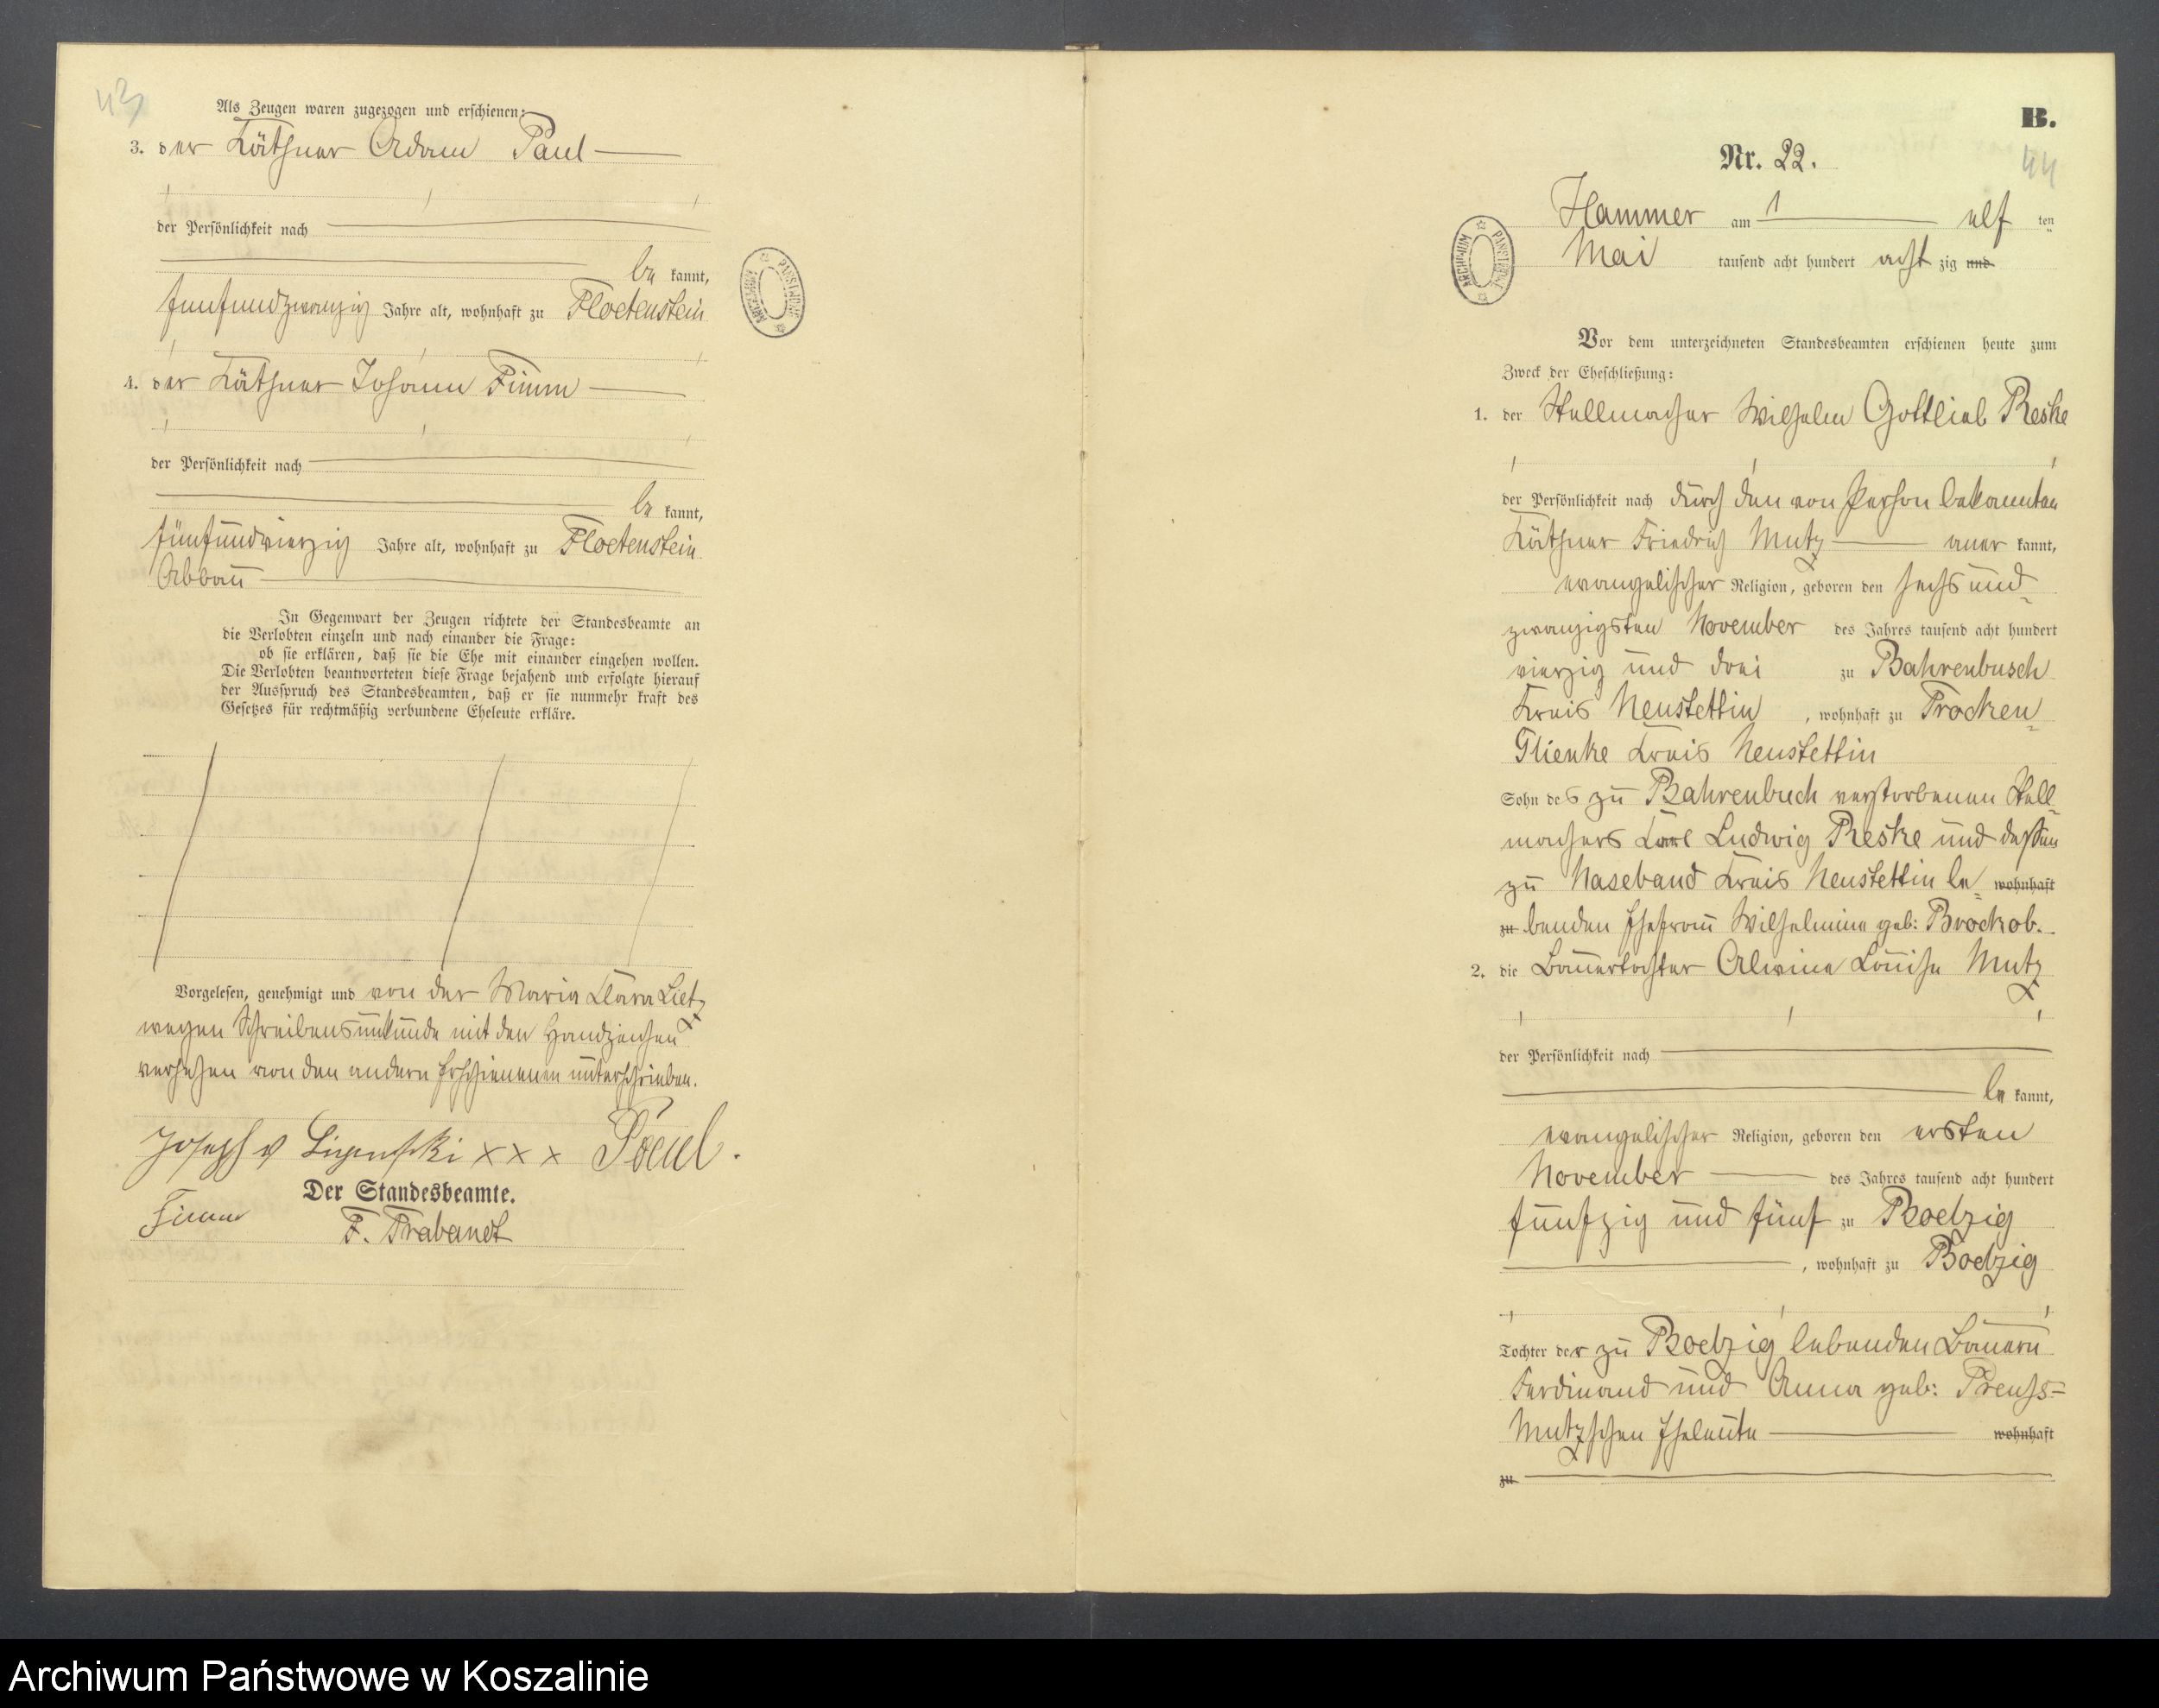 43
Als Zeugen waren zugezogen und erschienen:
3. der Käthner Adam Paul
der Persönlichkeit nach
be kannt,
fünfundzwanzig Jahre alt, wohnhaft zu Floetenstein
4. der Käthner Johann Fimm
der Persönlichkeit nach
be kannt,
fünfundvierzig Jahre alt, wohnhaft zu Floetenstein
Abbau
In Gegenwart der Zeugen richtete der Standesbeamte an
die Verlobten einzeln und nach einander die Frage:
ob sie erklären, daß sie die Ehe mit einander eingehen wollen.
Die Verlobten beantworteten diese Frage bejahend und erfolgte hierauf
der Ausspruch des Standesbeamten, daß er sie nunmehr kraft des
Gesetzes für rechtmäßig verbundene Eheleute erkläre.
Vorgelesen, genehmigt und von der Maria Clara Lietz
wegen Schreibensunkunde mit den Handzeichen
versehen von den andern Erschienenen unterschrieben.
Joseph v xxx Paul.
Der Standesbeamte.
Fimm
F. Trabandt
ARCHIWUM PAŃSTWOWE
B.
Nr. 22.
44
Hammer am 1 elf ten
Mai tausend acht hundert acht zig und
ARCHIWUM PAŃSTWOWE
Vor dem unterzeichneten Standesbeamten erschienen heute zum
Zweck der Eheschließung:
1. der Stellmacher Wilhelm Gottlieb Reske
der Persönlichkeit nach durch den von Person bekannten
Käthner Friedrich Mutz aner kannt,
evangelischer Religion, geboren den sechs und
zwanzigsten November des Jahres tausend acht hundert
vierzig und drei zu Bahrenbusch
Kreis Neustettin, wohnhaft zu Trocken
Glienke Kreis Neustettin
Sohn des zu Bahrenbuch verstorbenen Stell
machers Carl Ludwig Reske und dessen
zu Naseband Kreis Neustettin le wohnhaft
zu benden Ehefrau Wilhelmine geb: Brockob.
2. die Bauertochter Alwine Louise Mutz
der Persönlichkeit nach
be kannt,
evangelischer Religion, geboren den ersten
November des Jahres tausend acht hundert
fünfzig und fünf zu Boelzig
, wohnhaft zu Boelzig
Tochter der zu Boelzig lebenden Bauern
Ferdinand und Anna geb: Preuss-
Mutzschen Eheleute wohnhaft
zu
Archiwum Państwowe w Koszalinie